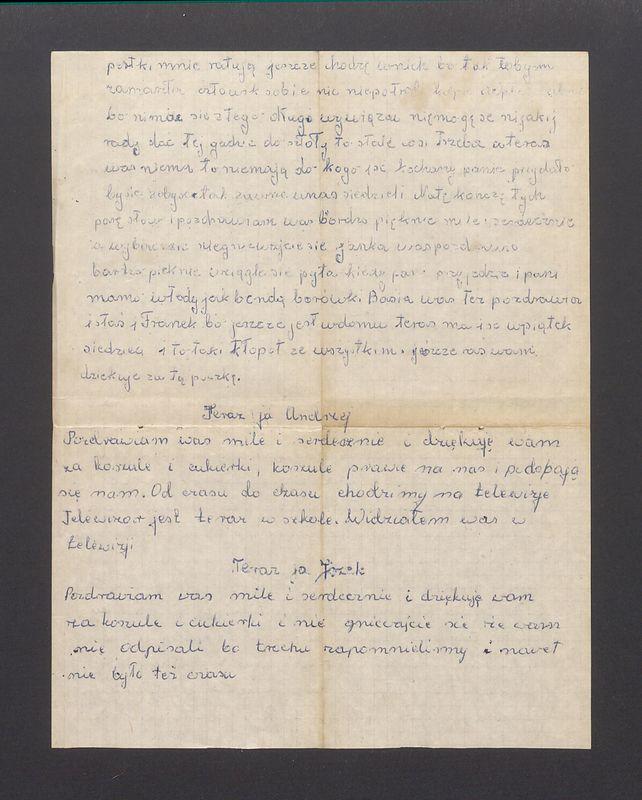 mnie ratują jeszcze chodzę w nich bo tak to bym
zamarzła człowiek sobie nic
bo nimoc się z tego długo wywiązać niemogę se nijakij
rady dać tej gadzie do szkoły to stale coś Trzeba a teras
was niema to niemają do kogo iść kochany panie przydało
by się żeby u nas siedzieli Na tę kończę tych
parę słów i pozdrawiam was bardzo pięknie mile i serdecznie
wybaczcie niegniewajcie się Janka was pozdrawia
bardzo pieknie wciągle się pyta kiedy pan przyjedzie i pani
mama włodyjak bendą borówki Basia was też pozdrawia
i staś i Franek bo jeszcze jest wdomu teras ma iść wpiątek
siedzieć i to taki kłopot ze wszystkim. jeszcze ras wam
dziekuje za tą paczkę.
Teraz ja Andrzej
Pozdrawiam was mile i serdecznie i dziękuję wam
za koszule i cukierki, koszule prawie na nas i podopają
się nam. Od czasu do czasu chodzimy na telewizje
Telewizor jest teraz w szkole. Widziałem was w
telewizji
Teraz ja Józek
Pozdrawiam was mile i serdecznie i dziękuję wam
za koszule i cukierki i nie gniewajcie się że wam
nie odpisali bo trochu zapomnielimy i nawet
nie było też czasu